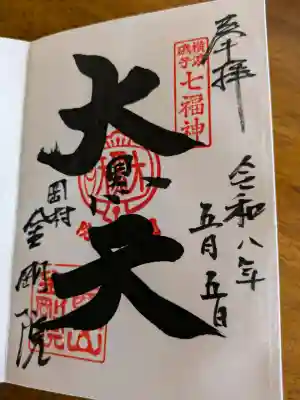 奉拝
横浜
磯子
七福神
令和八年
五月五日
大黒天
岡村
金剛院